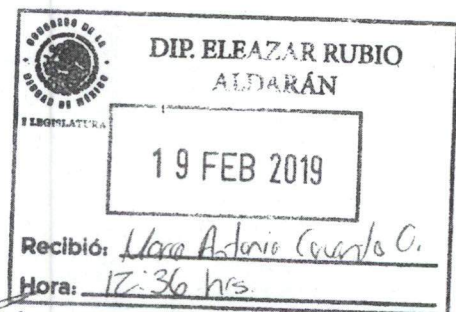 CONGRESO DE LA
CIUDAD DE MÉXICO
I LEGISLATURA
DIP. ELEAZAR RUBIO
ALDARÁN
19 FEB 2019
Recibió: Antonio
Hora: 12:36 hrs.